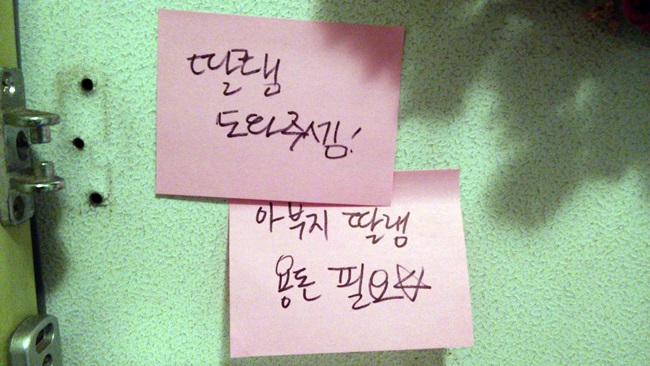 딸램
도와주셈!
아부지 딸램
용돈 필요☆